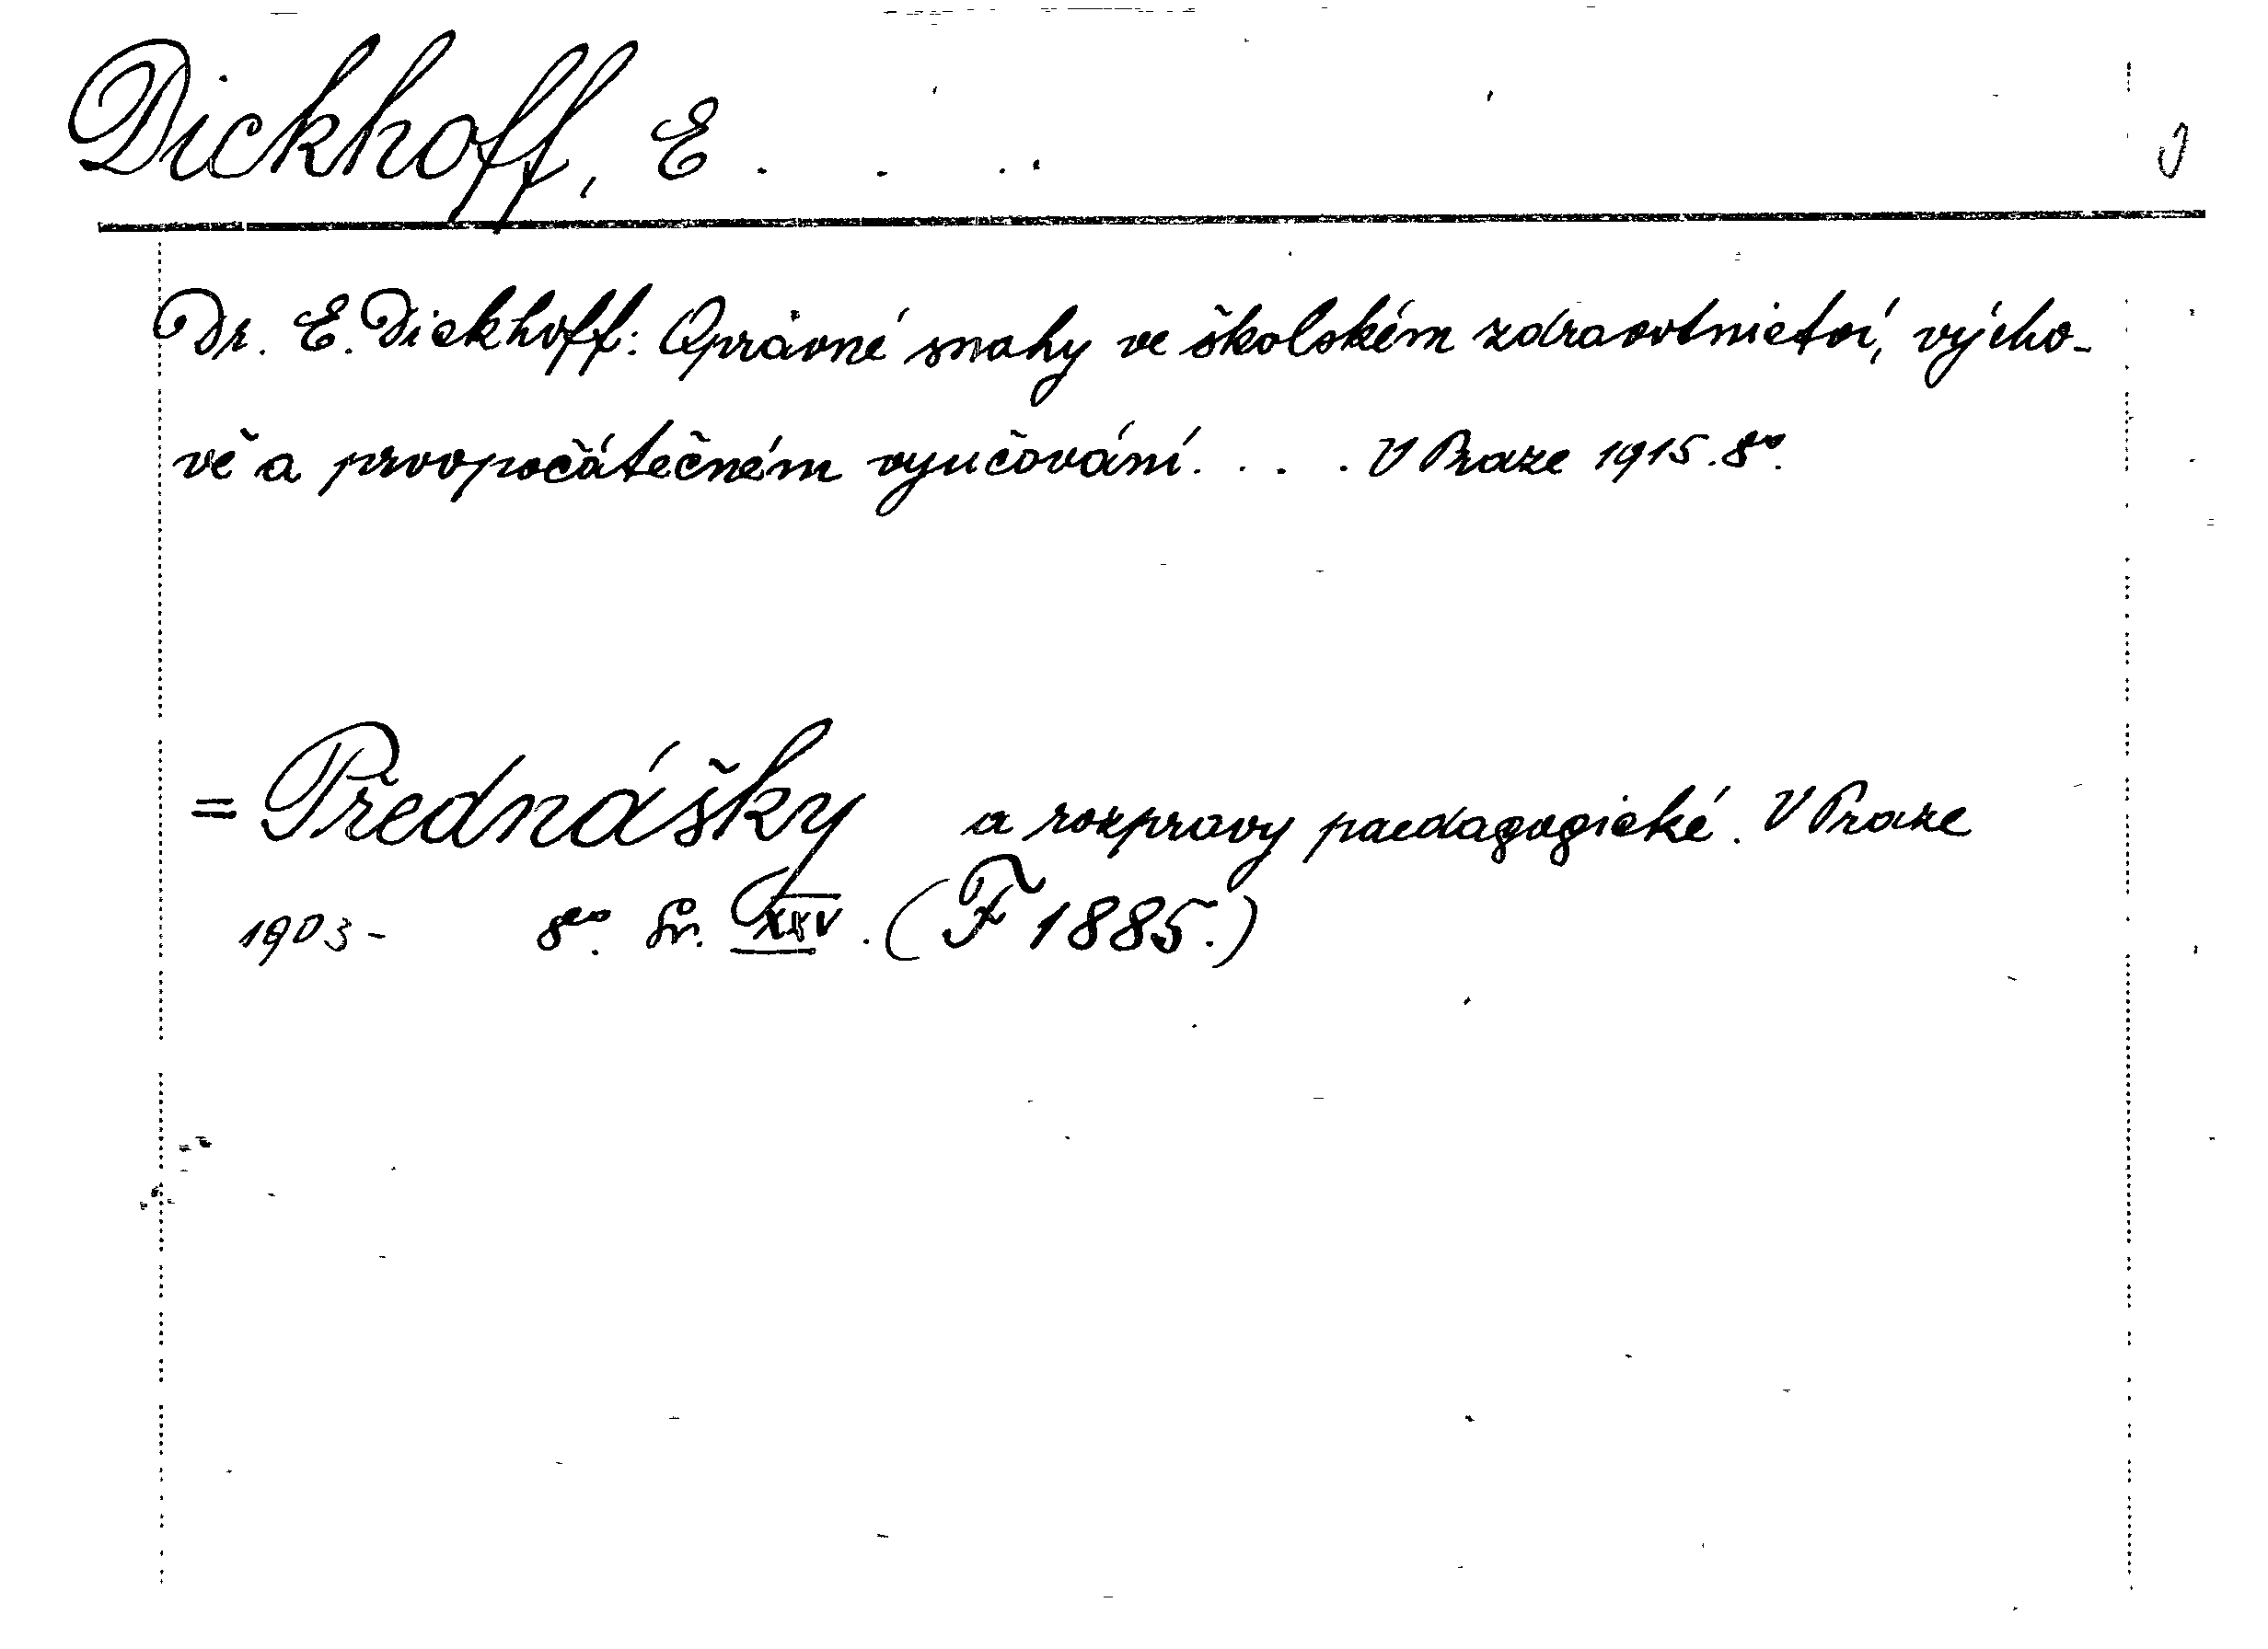 Dickhoff, E . . . .
Dr. E. Dickhoff: Oprávné snahy ve školském zdravotnictví, výcho-
vě a prvopočátečném vyučování. . . . V Praze 1915. 8o.
= Přednášky a rozpravy paedagogické. V Praze
1903- 8o. Sv. XXV. (F 1885.)